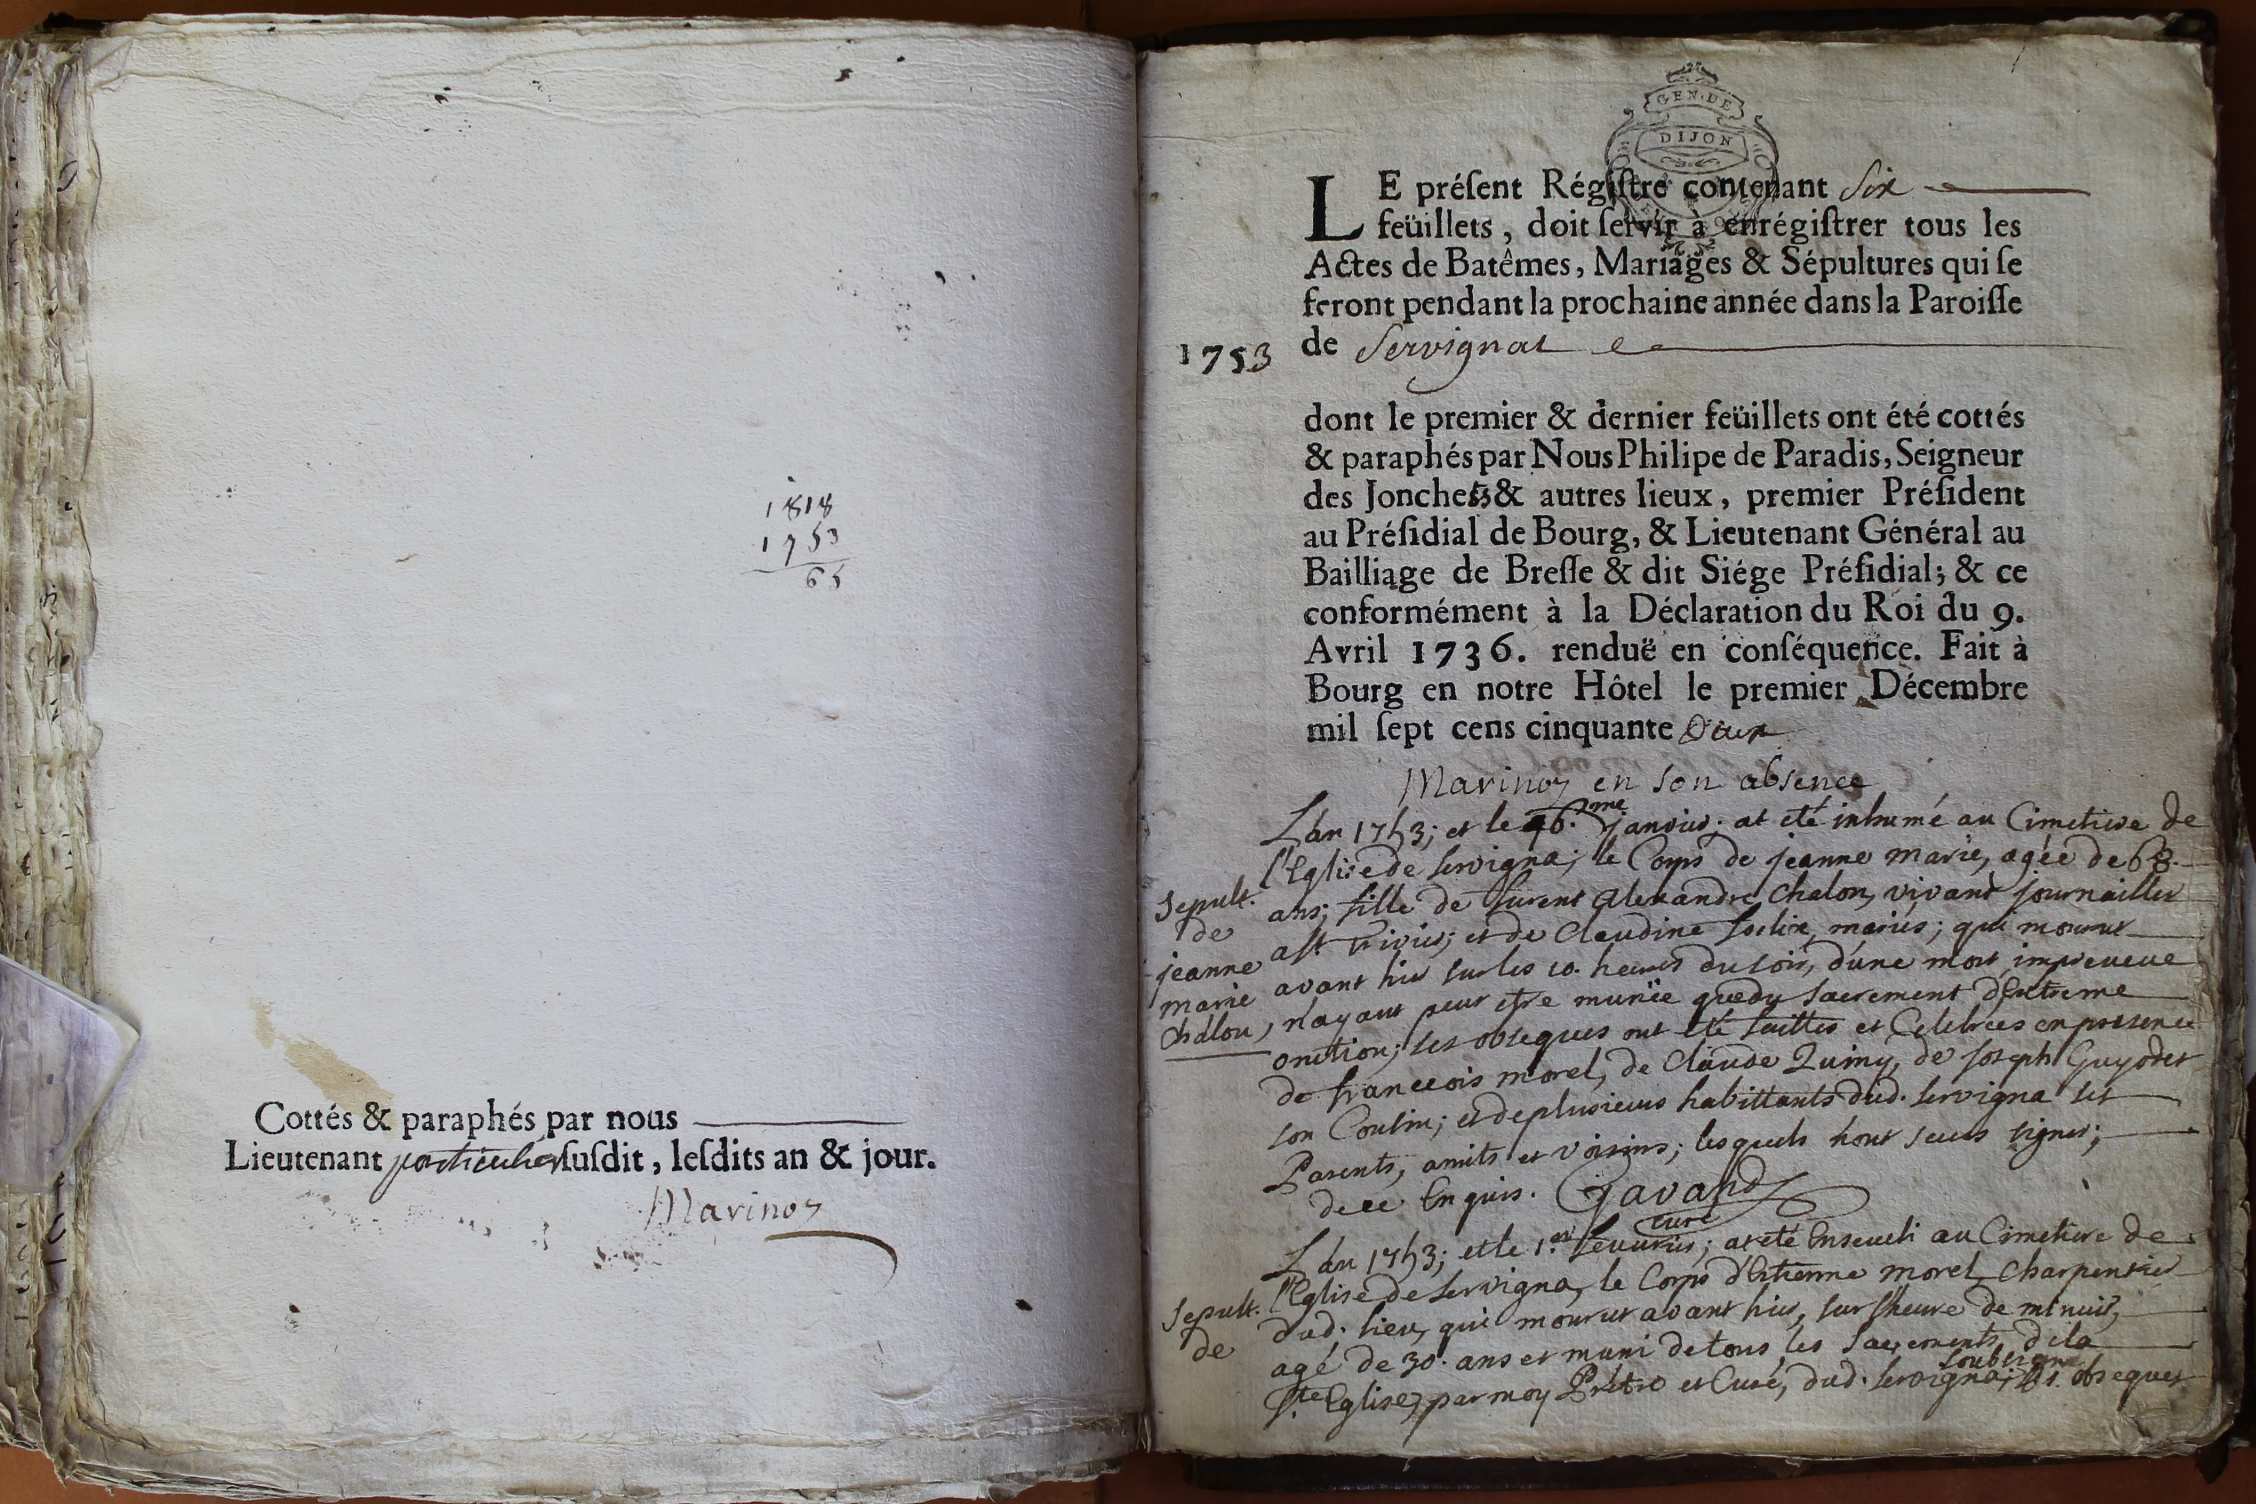 1818
1753
65
Cottés & paraphés par nous
Lieutenant particulier susdit, lesdits an & jour.
Marinon
GEN. DE
DIJON
LE préſent Régiſtre contenant Six
feüillets, doit ſervir à enrégiſtrer tous les
Actes de Batêmes, Mariages & Sépultures qui ſe
feront pendant la prochaine année dans la Paroiſſe
1753
de Servignat
dont le premier & dernier feüillets ont été cottés
& paraphés par Nous Philipe de Paradis, Seigneur
des Jonches & autres lieux, premier Préſident
au Préſidial de Bourg, & Lieutenant Général au
Bailliage de Breſſe & dit Siége Préſidial; & ce
conformément à la Déclaration du Roi du 9.
Avril 1736. renduë en conſéquence. Fait à
Bourg en notre Hôtel le premier Décembre
mil ſept cens cinquante Deux
Marinon en son absence
Lan 1753; et le 16.me janvier. at eté inhumé au Cimetiere de
l'Eglise de servigna; le Corps de jeanne marie, agée de 68.
ans; fille de furent alexandre Chalon, vivant journallier
et de Claudine mariés; qui mourut
avant hier sur les 10. heures du soir, d'une mort impreveue
n'ayant peut etre munie que du sacrement d'Extreme
onction; ses obseques ont eté faittes et Celebrées en presence
de francois morel, de Claude Quiny, de joseph Guyodet
son Cousin; et de plusieurs habittants dud. servigna ses
Parents, amits et voisins; lesquels n'ont sceus signer;
de ce Enquis. Gavand
curé
Sepult.
de
jeanne
marie
Chalon
Lan 1753; et le 1.er fevurier; at eté Enseveli au Cimetiere de
l'Eglise de servigna, le Corps d'Etienne morel Charpentier
dud. lieu, qui mourut avant hier, sur l'heure de minuit,
agé de 30. ans et muni de tous les sacrements de la
soubsigné
Ste Eglise, par moy Prêtre et Curé, dud. servigna; ses obseques
Sepult.
de